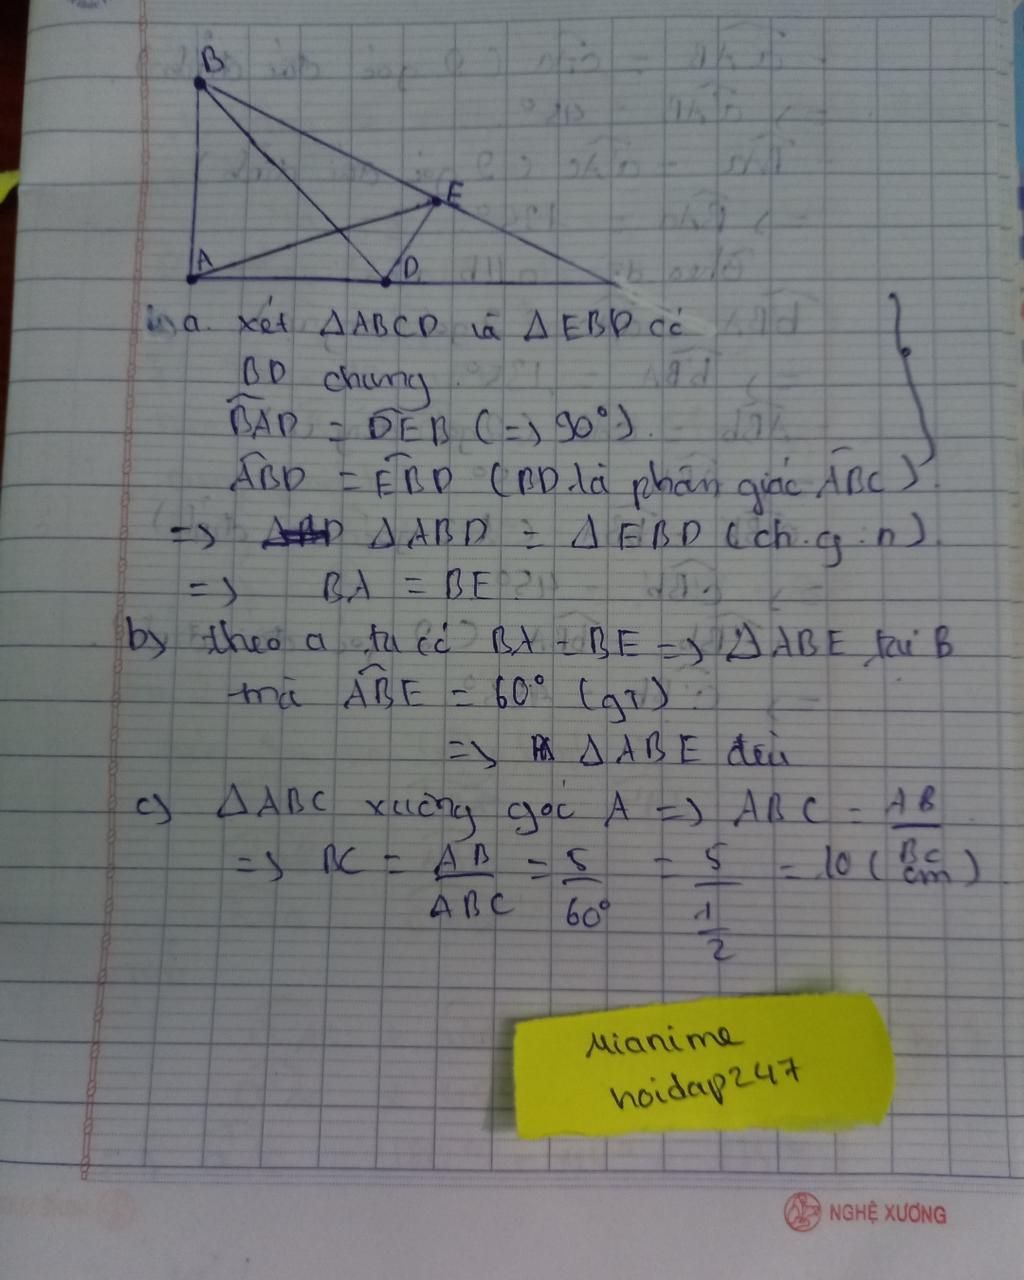 B
E
A
D
a. xét ΔABCD và ΔEBD có
BD chung
B̂AD = D̂EB (=> 90°).
ÂBD = ÊBD (BD là phân giác ÂBC)
=> ΔABD = ΔEBD (ch.g.n)
=> BA = BE
b) theo a ta có BA = BE => ΔABE tại B
mà ÂBE = 60° (gt)
=> ΔABE đều
c) ΔABC xuông góc A => ABC = AB/BC
=> BC = AB/ABC = 5/60° = 5/(1/2) = 10 (cm)
Mianime
hoidap247
NGHỆ XƯƠNG